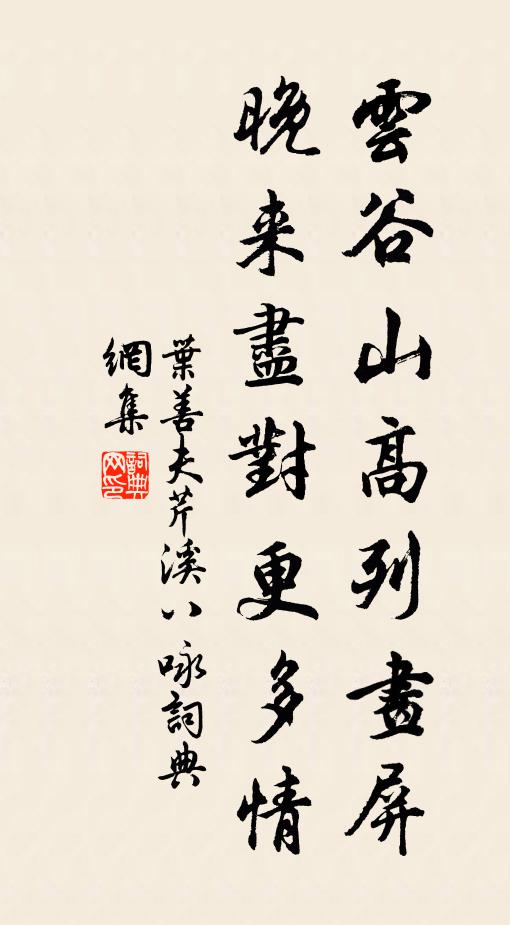 雲谷山高列畫屏
晚来盡對更多情
葉善夫芹溪八咏詞典
網集
詞典网印